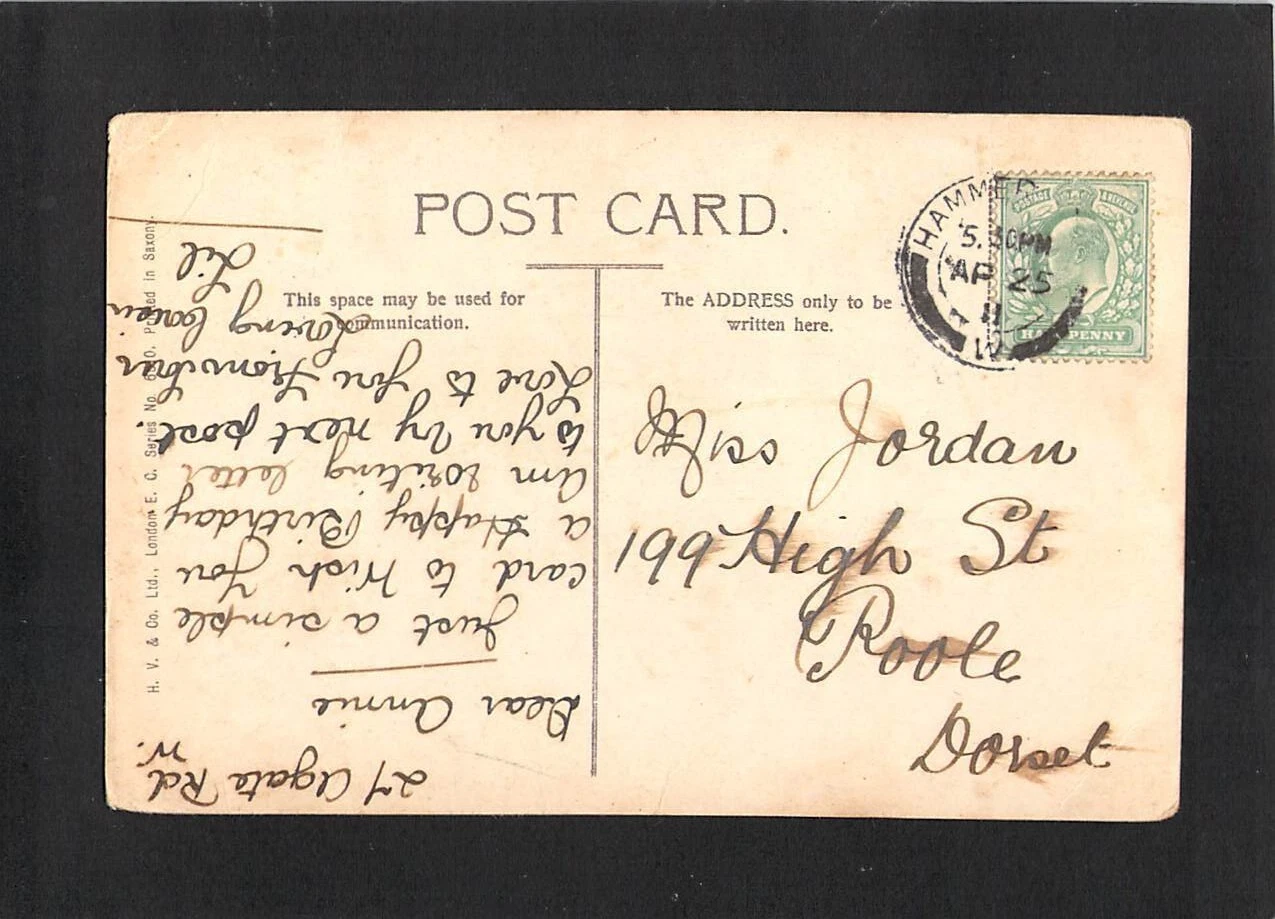 POST CARD.
This space may be used for
communication.
The ADDRESS only to be
written here.
HAMMER
5.30PM
AP 25
11
W.
POSTAGE
HALFPENNY
Miss Jordan
199 High St
Poole
Dorset
27 Agate Rd
W.
Dear Annie
Just a simple
card to Wish you
a Happy Birthday
am writing letter
to you by next post.
Love to you from
Loving Cousin
Lil
H. V. & Co. Ltd., London E. C. Series No. Printed in Saxony.